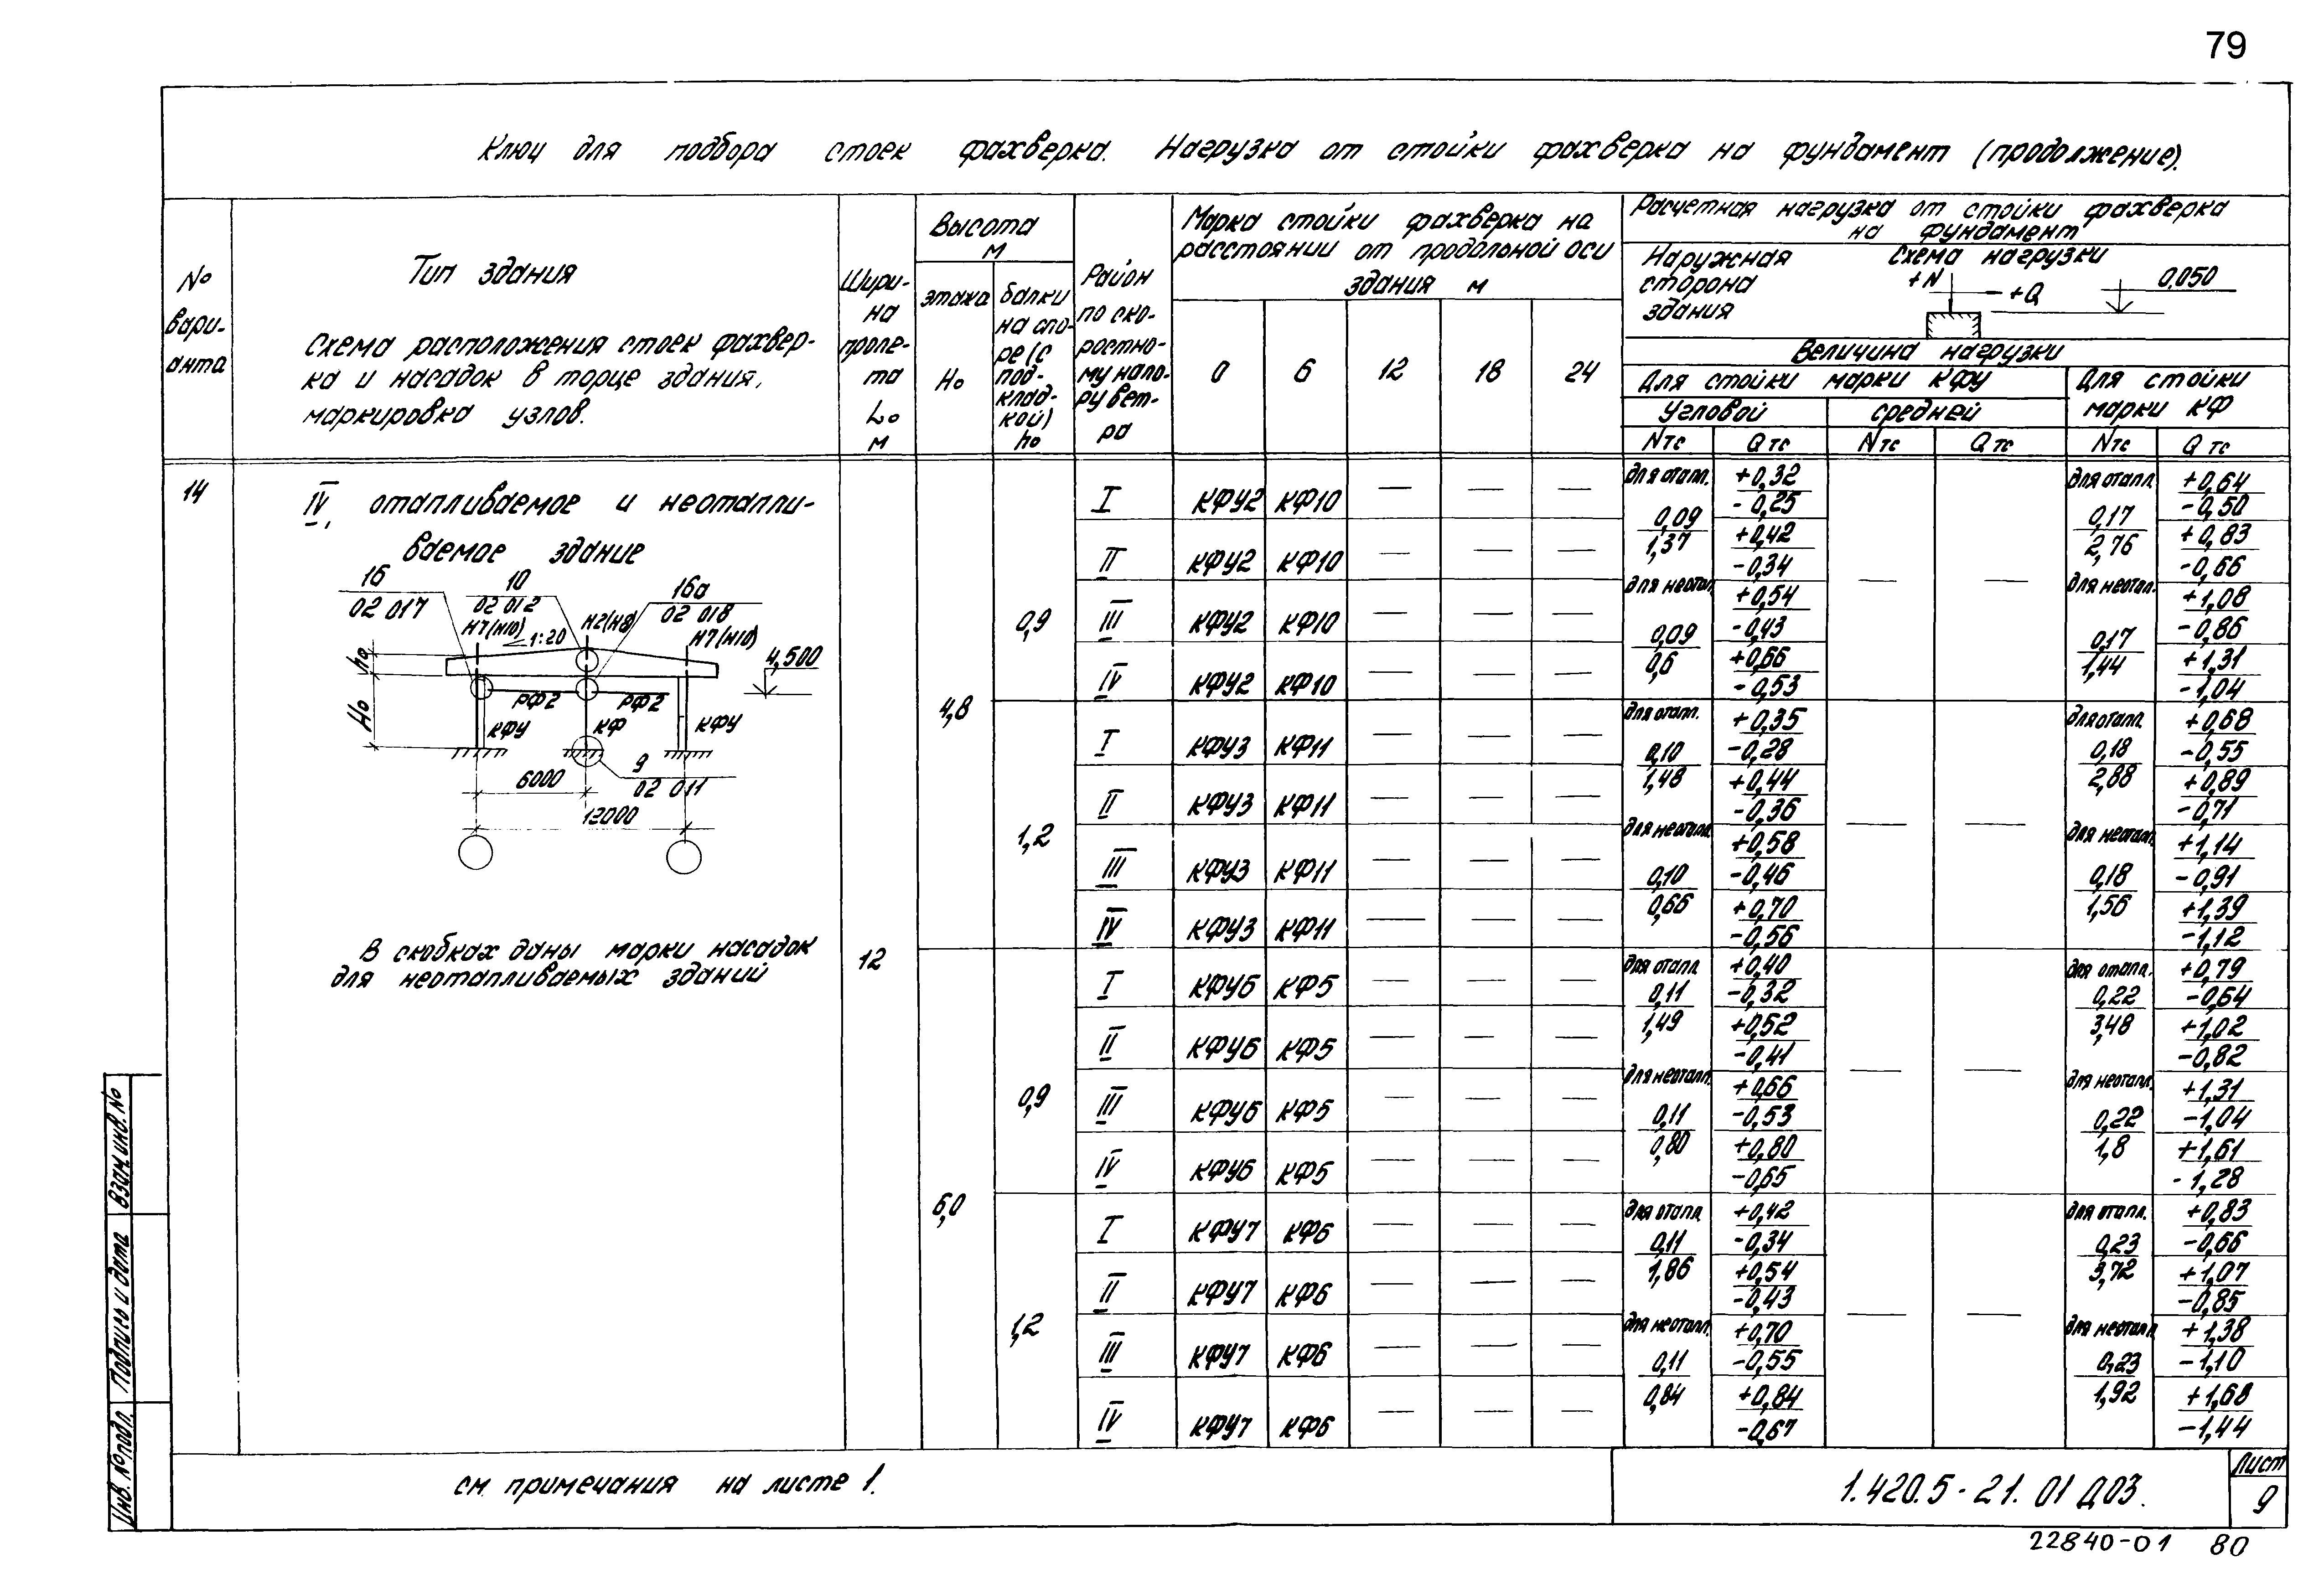 79
Ключ для подбора стоек фахверка. Нагрузка от стойки фахверка на фундамент (продолжение).
№ вари-анта
Тип здания
Схема расположения стоек фахвер-
ка и насадок в торце здания,
маркировка узлов.
Шири-
на
проле-
та
L₀
м
Высота
м
этажа
H₀
балки
на опо-
ре (с
под-
клад-
кой)
h₀
Район
по ско-
ростно-
му напо-
ру вет-
ра
Марка стойки фахверка на
расстоянии от продольной оси
здания м
0 6 12 18 24
Расчетная нагрузка от стойки фахверка
на фундамент
Наружная
сторона
здания
Схема нагрузки
+N
+Q
0,050
Величина нагрузки
Для стойки марки КФУ
Для стойки
марки КФ
Угловой средней
Nтс Qтс Nтс Qтс Nтс Qтс
14
IV, отапливаемое и неотапли-
ваемое здание
16
02 017
10
02 012
16а
02 018
Н7(Н10)
Н2(Н8)
Н7(Н10)
1:20
4,500
h₀
H₀
РФ2 РФ2
КФУ КФ КФУ
9
02 011
6000
12000
В скобках даны марки насадок
для неотапливаемых зданий
12
4,8
0,9
I КФУ2 КФ10 — — —
II КФУ2 КФ10 — — —
III КФУ2 КФ10 — — —
IV КФУ2 КФ10 — — —
для отапл.
0,09
1,37
для неотап.
0,09
0,6
+0,32
-0,25
+0,42
-0,34
+0,54
-0,43
+0,66
-0,53
— —
для отапл.
0,17
2,76
для неотап.
0,17
1,44
+0,64
-0,50
+0,83
-0,66
+1,08
-0,86
+1,31
-1,04
1,2
I КФУ3 КФ11 — — —
II КФУ3 КФ11 — — —
III КФУ3 КФ11 — — —
IV КФУ3 КФ11 — — —
для отапл.
0,10
1,48
для неотапл.
0,10
0,66
+0,35
-0,28
+0,44
-0,36
+0,58
-0,46
+0,70
-0,56
— —
для отапл.
0,18
2,88
для неотапл.
0,18
1,56
+0,68
-0,55
+0,89
-0,71
+1,14
-0,91
+1,39
-1,12
6,0
0,9
I КФУ6 КФ5 — — —
II КФУ6 КФ5 — — —
III КФУ6 КФ5 — — —
IV КФУ6 КФ5 — — —
для отапл.
0,11
1,49
для неотапл.
0,11
0,80
+0,40
-0,32
+0,52
-0,41
+0,66
-0,53
+0,80
-0,65
— —
для отапл.
0,22
3,48
для неотапл.
0,22
1,8
+0,79
-0,64
+1,02
-0,82
+1,31
-1,04
+1,61
-1,28
1,2
I КФУ7 КФ6 — — —
II КФУ7 КФ6 — — —
III КФУ7 КФ6 — — —
IV КФУ7 КФ6 — — —
для отапл.
0,11
1,86
для неотапл.
0,11
0,84
+0,42
-0,34
+0,54
-0,43
+0,70
-0,55
+0,84
-0,67
— —
для отапл.
0,23
3,72
для неотапл.
0,23
1,92
+0,83
-0,66
+1,07
-0,85
+1,38
-1,10
+1,68
-1,44
см. примечания на листе 1.
1.420.5-21.01 Д03.
Лист
9
22840-01 80
Инв. № подл. Подпись и дата Взам. инв. №